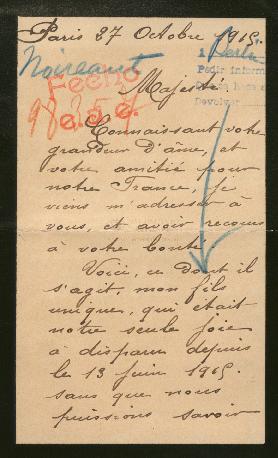 Paris 27 Octobre 1915
1 Berlin
Noireaut
Pedir inform
Fecho
Majesté
Devolver
Connaissant votre
grandeur d'âme, et
votre amitié pour
notre France, je
viens m'adresser à
vous, et avoir recours
à votre bonté.
Voici, ce dont il
s'agit, mon fils
unique, qui était
notre seule joie
a disparu depuis
le 13 juin 1915.
sans que nous
puissions savoir